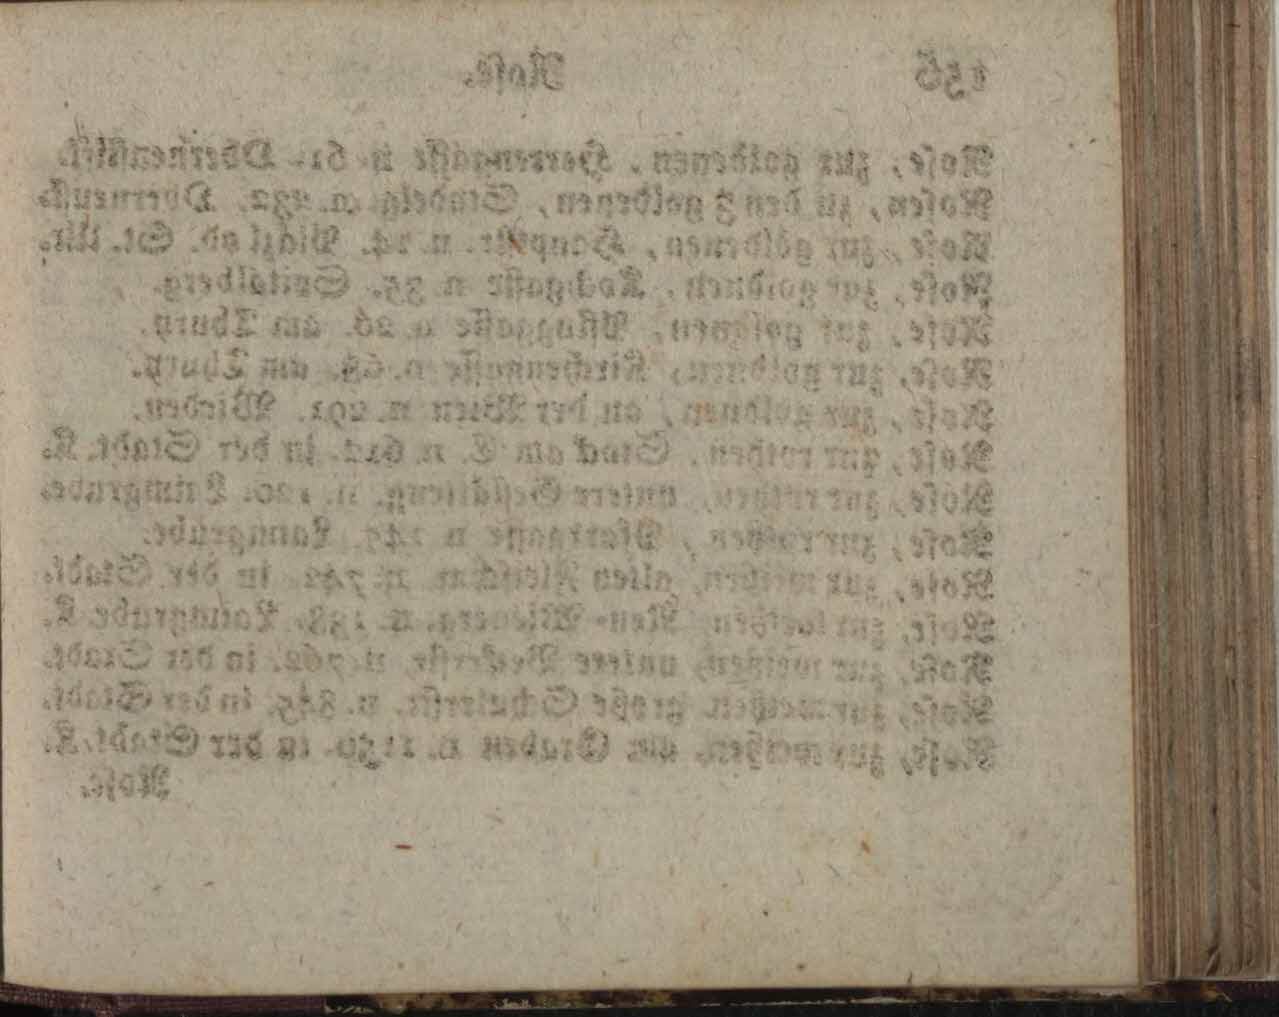 156 Rose.
Rose, zur goldenen, Herrengasse n. 61. Oberneustift.
Rosen, zu den 3 goldenen, n. 232. Oberneust.
Rose, zur goldenen, Hauptstr. n. 14. St. Ulr.
Rose, zur goldnen, Kochgasse n. 35. Spitalberg.
Rose, zur goldnen, n. 26. am Thury.
Rose, zur goldnen, Kirchengasse n. 63. am Thury.
Rose, zur goldnen, an der Wien n. 291. Wieden.
Rose, zur rothen, Stock am E. n. 612. in der Stadt. K.
Rose, zur rothen, untere n. 120. Laimgrube.
Rose, zur rothen, Pfarrgasse n. 145. Laimgrube.
Rose, zur weißen, alten Fleischm. n. 742. in der Stadt.
Rose, zur weißen, n. 138. Laimgrube. K.
Rose, zur weißen, untere Beckerstr. n. 762. in der Stadt.
Rose, zur weißen, große Schulerstr. n. 845. in der Stadt.
Rose, zur weißen, am Graben n. 1150. in der Stadt. K.
Rose.